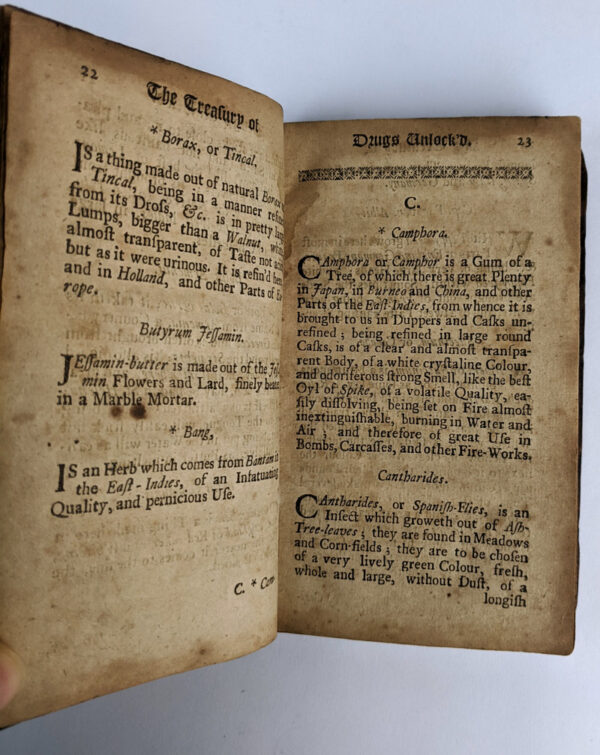 22
The Treasury of
* Borax, or Tincal,
IS a thing made out of natural Borax
Tincal, being in a manner refin'd
from its Dross, &c. is in pretty large
Lumps, bigger than a Walnut,
almost transparent, of Taste not
but as it were urinous. It is refin'd here
and in Holland, and other Parts of Eu-
rope.
Butyrum Jeſſamin.
JEſſamin-butter is made out of the Jeſſ-
min Flowers and Lard, finely beaten
in a Marble Mortar.
* Bang,
IS an Herb which comes from Bantam in
the Eaſt-Indies, of an Infatuating
Quality, and pernicious Uſe.
C. * Cam-
Drugs Unlock'd. 23
C.
* Camphora.
CAmphora or Camphor is a Gum of a
Tree, of which there is great Plenty
in Japan, in Burneo and China, and other
Parts of the Eaſt-Indies, from whence it is
brought to us in Duppers and Casks un-
refined ; being refined in large round
Casks, is of a clear and almoſt tranſpa-
rent Body, of a white cryſtaline Colour,
and odoriferous ſtrong Smell, like the beſt
Oyl of Spike, of a volatile Quality, ea-
ſily diſſolving, being ſet on Fire almoſt
inextinguiſhable, burning in Water and
Air ; and therefore of great Uſe in
Bombs, Carcaſſes, and other Fire-Works.
Cantharides.
CAntharides, or Spaniſh-Flies, is an
Inſect which groweth out of Aſh-
Tree-leaves ; they are found in Meadows
and Corn-fields ; they are to be choſen
of a very lively green Colour, freſh,
whole and large, without Duſt, of a
longiſh